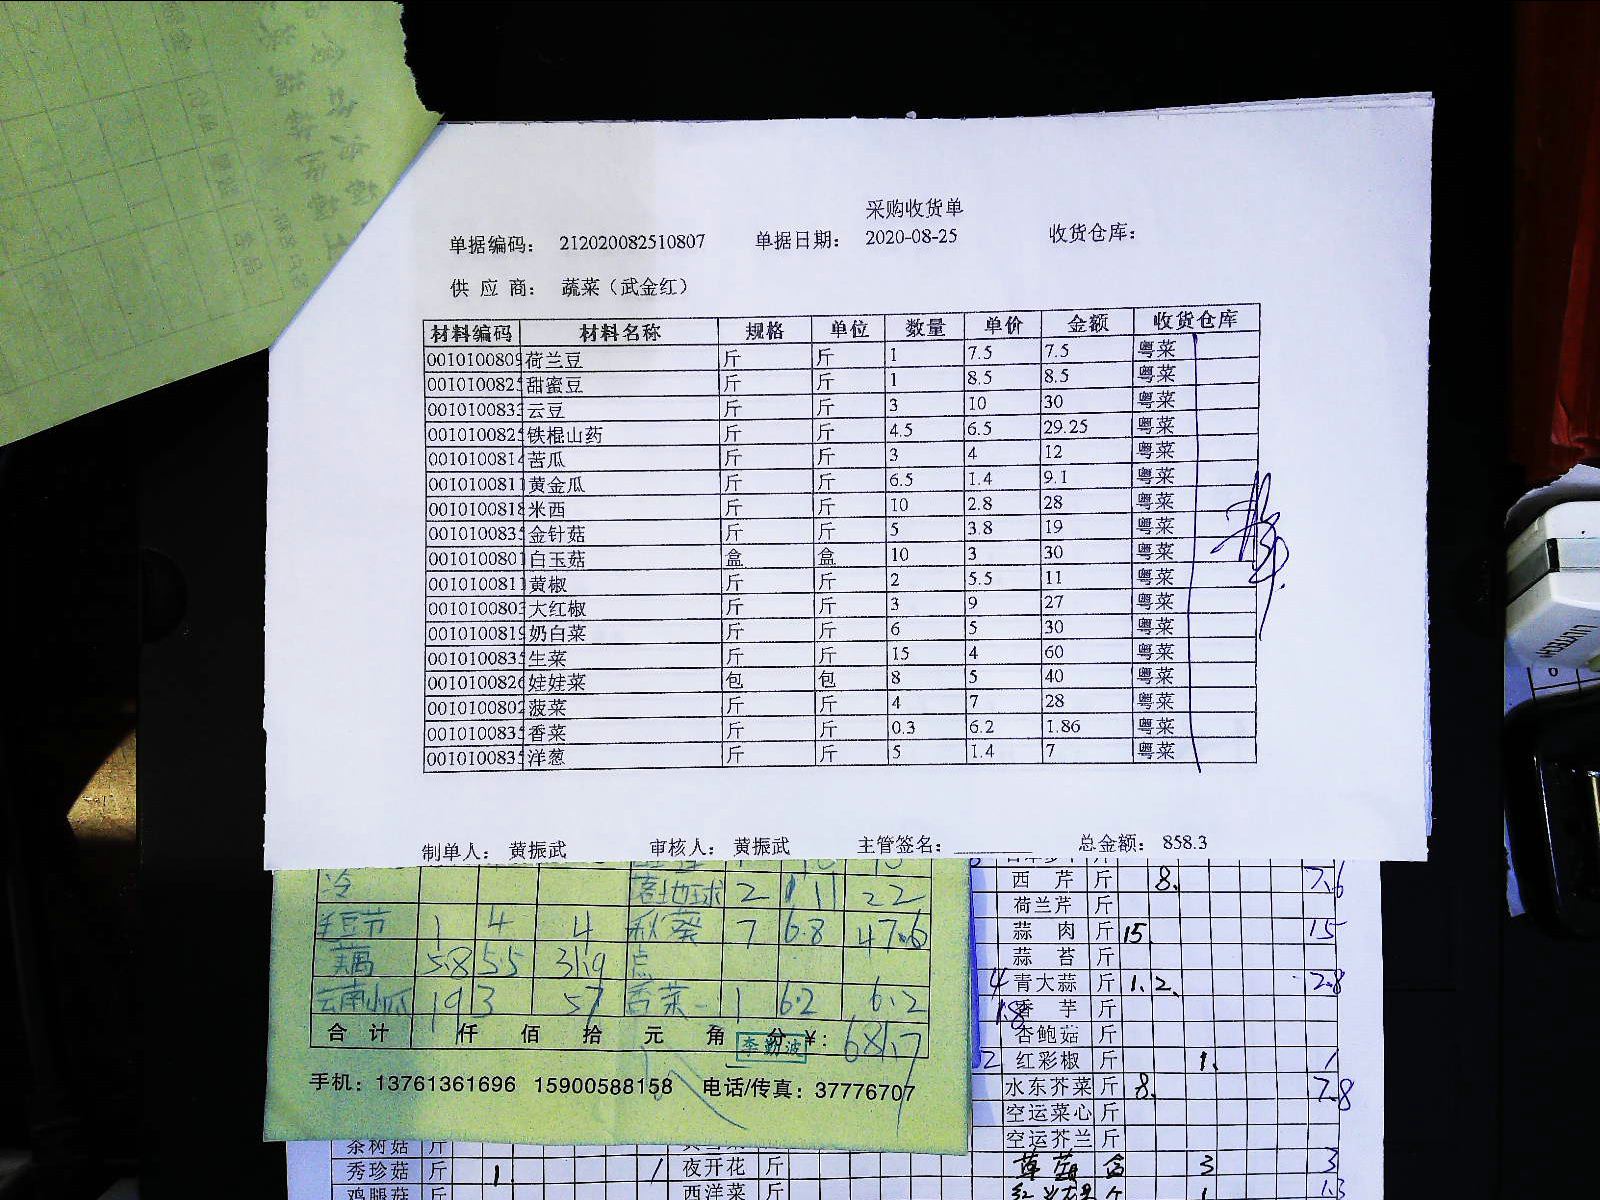 采购收货单
单据编码： 212020082510807 单据日期： 2020-08-25 收货仓库：
供 应 商： 蔬菜（武金红）
材料编码 材料名称 规格 单位 数量 单价 金额 收货仓库
0010100809 荷兰豆 斤 斤 1 7.5 7.5 粤菜
001010082 甜蜜豆 斤 斤 1 8.5 8.5 粤菜
001010083 云豆 斤 斤 3 10 30 粤菜
001010082 铁棍山药 斤 斤 4.5 6.5 29.25 粤菜
001010081 苦瓜 斤 斤 3 4 12 粤菜
001010081 黄金瓜 斤 斤 6.5 1.4 9.1 粤菜
0010100818 米西 斤 斤 10 2.8 28 粤菜
001010083 金针菇 斤 斤 5 3.8 19 粤菜
001010080 白玉菇 盒 盒 10 3 30 粤菜
001010081 黄椒 斤 斤 2 5.5 11 粤菜
001010080 大红椒 斤 斤 3 9 27 粤菜
0010100819 奶白菜 斤 斤 6 5 30 粤菜
001010083 生菜 斤 斤 15 4 60 粤菜
0010100826 娃娃菜 包 包 8 5 40 粤菜
0010100802 菠菜 斤 斤 4 7 28 粤菜
001010083 香菜 斤 斤 0.3 6.2 1.86 粤菜
001010083 洋葱 斤 斤 5 1.4 7 粤菜
制单人： 黄振武 审核人： 黄振武 主管签名： 总金额： 858.3
落地球 2 11 22
1 4 4 秋葵 7 6.8 47.6
藕 5.8 5.5 31.9
19 3 57 香菜 1 6.2 6.2
合 计 仟 佰 拾 元 角 分 ¥： 681.7
李勤波
手机：13761361696 15900588158 电话/传真：37776707
西 芹 斤 8. 7.6
荷兰芹 斤
蒜 肉 斤 15 15
蒜 苔 斤
青大蒜 斤 1.2. 2.8
香 芋 斤
杏鲍菇 斤
红彩椒 斤 1. 1
水东芥菜 斤 8. 7.8
空运菜心 斤
空运芥兰 斤
草菇 盒 3 3
茶树菇 斤
秀珍菇 斤 1. 1 夜开花 斤
鸡腿菇 斤 西洋菜 斤